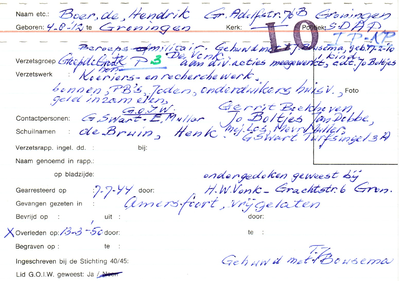 Naam etc.: Boer, de, Hendrik G. Adolfstr. 70B Groningen
Geboren: 4-8-'12 te Groningen Kerk: Pol.: SDAP
LO
Beroeps militair. Gehuwd
Verzetsgroep De Vonk, kind
P 3 aan div. acties meegewerkt, o.a. Jo Boltjes
Verzetswerk
Koeriers- en recherchewerk.
bonnen, PB's, Joden, onderduikers huisv.,
Foto
geld inzamelen,
G.O.I.W. Gerrit Boekhoven
Contactpersonen: G. Swart - E. Muller Jo Boltjes
Schuilnamen de Bruin, Henk G. Swart Turfsingel
Verzetsrapp. ingel. dd. : bij:
Naam genoemd in rapp.:
op bladzijde: ondergedoken geweest bij
Gearresteerd op 7-7-44 door: H.W. Vonk - Grachtstr. 6 Gron.
Gevangen gezeten in : Amersfoort, vrijgelaten
Bevrijd op : uit : door:
X Overleden op 13-3-'50 door: te :
Begraven op : te :
Ingeschreven bij de Stichting 40/45: Gehuwd met Bousema
Lid G.O.I.W. geweest: Ja / Neen